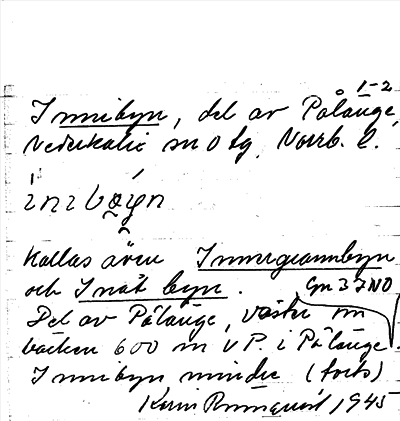 1-2
Innibyn, del av Pålänge,
Nederkalix sn o tg. Norrb. l.
ìnibýn
Kallas även Innergrannbyn
och Inåt byn. Gn 37 NO
Del av Pålänge, väster om
backen 600 m v P. i Pålänge.
Innibyn mindre (forts)
Karin 1945